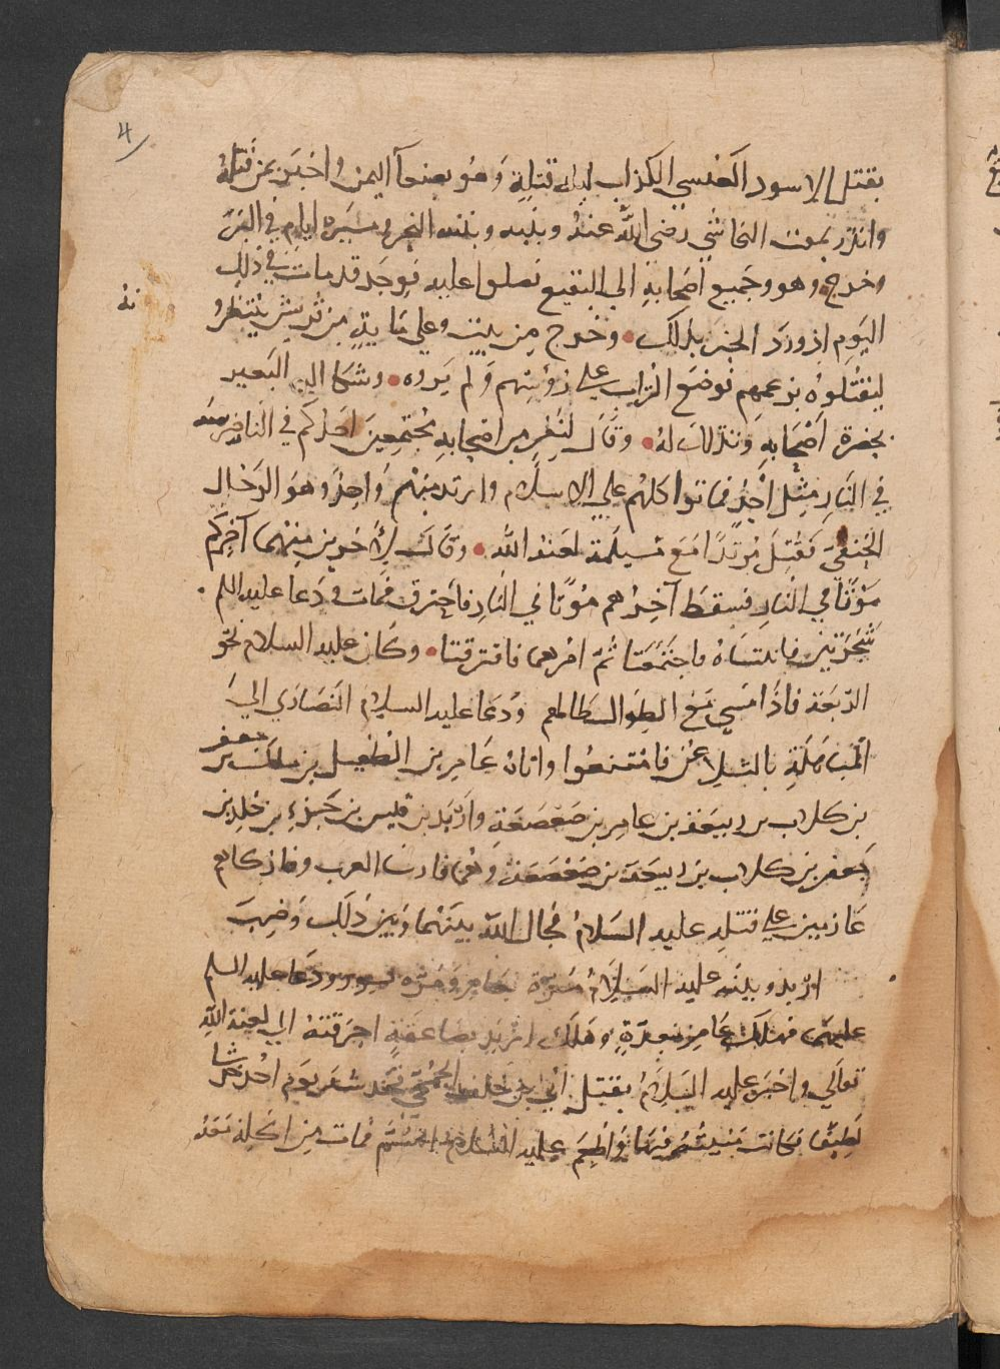 4
بقتل الاسود العنسي الكذاب ليلة قتله وهو بصنعآ اليمن واخبر بمن قتله
وانذر بموت النجاشي رضي الله عنه وبينه وبينه البحر ومسيرة ايام في البر
وخرج هو وجميع اصحابه الي البقيع فصلوا عليه فوجد قد مات في ذلك
اليوم اذ ورد الخبر بذلك • وخرج من بيته وعلي مآية من قريش ينتظروه
ليقتلوه بزعمهم فوضع التراب علي رؤسهم ولم يروه • وشكا اليه البعير
بحضرة اصحابه وتذلل له • وقال لنفر من اصحابه مجتمعين احدكم في النار ضرسه
في النار مثل احد فماتوا كلهم علي الاسلام وارتد منهم واحد وهو الرحال
الحنفي فقتل مرتدا مع مسيلمة لعنه الله • وقال لآخرين منهم آخركم
موتا في النار فسقط آخرهم موتا في النار فاحترق فمات ودعا عليه السلم
شجرتين فاتتاه فاجتمعتا ثم امرهما فافترقتا • وكان عليه السلام نحو
الربعة فاذا مشي مع الطوال طالهم ودعا عليه السلام النصاري الي
المباهلة بالتلاعن فامتنعوا واتاه عامر بن الطفيل بن ملك بن جعفر
بن كلاب بن ربيعة بن عامر بن صعصعة واربد بن قيس بن جزء بن خلد بن
جعفر بن كلاب بن ربيعة بن صعصعة وهما فارسا العرب وفاتكاهم
عازمين علي قتله عليه السلام فحال الله بينهما وبين ذلك وضرب
اربد وبينه عليه السلام مرة بعامر ومرة بسور ودعا عليه السلم
عليهما فهلك عامر بغدة وهلك اربد بصاعقة احرقته الي لعنة الله
تعالي واخبر عليه السلام بقتل ابي بن خلف الجمحي فخدشه يوم احد خدشا
لطيفا فكانت منيته منها واطعم عليه السلام السم فمات من اكله معه